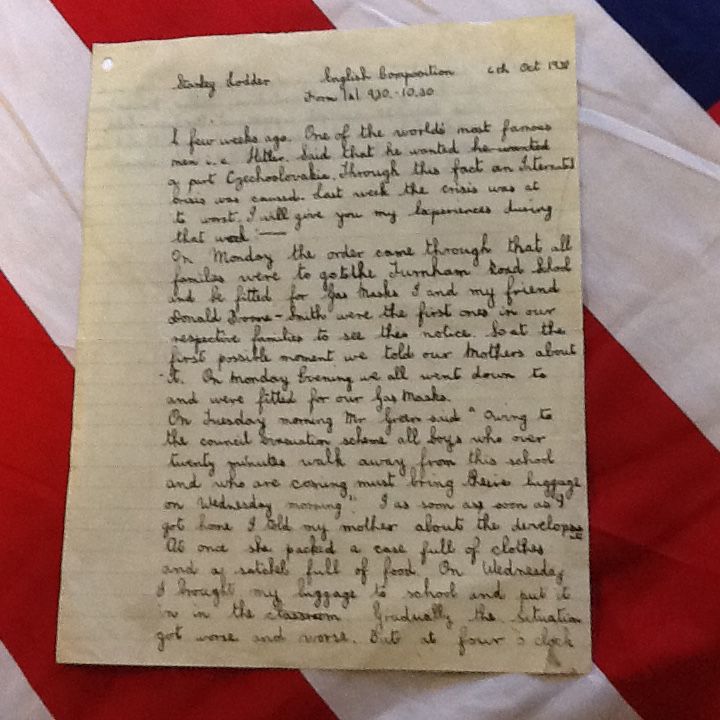 Stanley Lodder English Composition 6th Oct 1938
Form 9.30-10.30
A few weeks ago. One of the world's most famous
men i.e Hitler. Said that he wanted he wanted
a part Czechoslovakia. Through this fact an Internatl
Crisis was caused. Last week the crisis was at
to worst. I will give you my Experiences during
that week :—
On Monday the order came through that all
families were to go to the Turnham Road School
and be fitted for Gas Masks I and my friend
Donald -Smith were the first ones in our
respective families to see this notice. So at the
first possible moment we told our Mothers about
it. On Monday Evening we all went down to
and were fitted for our Gas Masks.
On Tuesday morning Mr Green said " Owing to
the council evacuation scheme all boys who over
twenty minutes walk away from this school
and who are coming must bring luggage
on Wednesday morning". I as soon as soon as I
got home I told my mother about the
At once she packed a case full of clothes
and a satchel full of food. On Wednesday
I brought my luggage to school and put it
in in the classroom Gradually the situation
got worse and worse. But at four o clock